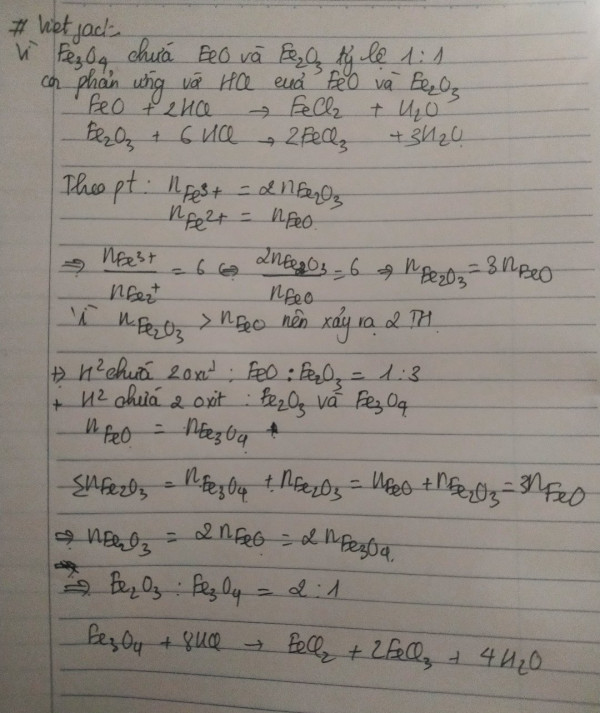 # Vietjack
Vì Fe₃O₄ chứa FeO và Fe₂O₃ tỷ lệ 1:1
phản ứng và HCl FeO và Fe₂O₃
FeO + 2HCl → FeCl₂ + H₂O
Fe₂O₃ + 6HCl → 2FeCl₃ + 3H₂O
Theo pt: nFe³⁺ = 2nFe₂O₃
nFe²⁺ = nFeO
⇒ nFe³⁺/nFe²⁺ = 6 ⇔ 2nFe₂O₃/nFeO = 6 ⇒ nFe₂O₃ = 3nFeO
Vì nFe₂O₃ > nFeO nên xảy ra 2 TH
+) H² chứa 2 oxit : FeO : Fe₂O₃ = 1 : 3
+ H² chứa 2 oxit : Fe₂O₃ và Fe₃O₄
nFeO = nFe₃O₄
ΣnFe₂O₃ = nFe₃O₄ + nFe₂O₃ = nFeO + nFe₂O₃ = 3nFeO
⇒ nFe₂O₃ = 2nFeO = 2nFe₃O₄
⇒ Fe₂O₃ : Fe₃O₄ = 2 : 1
Fe₃O₄ + 8HCl → FeCl₂ + 2FeCl₃ + 4H₂O